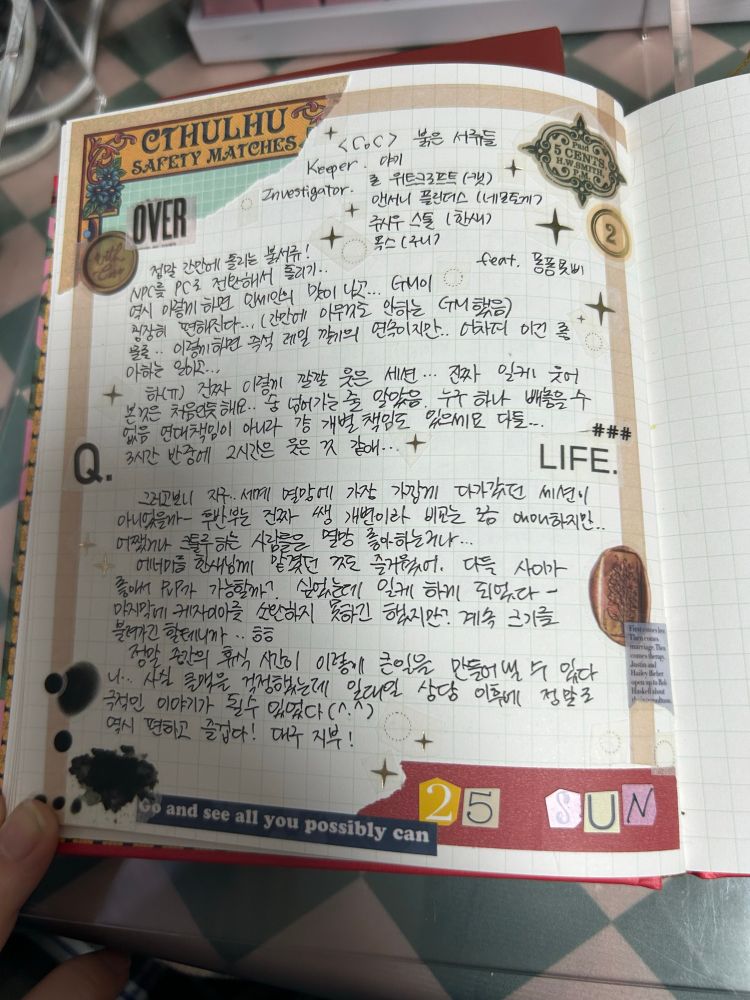 CTHULHU
SAFETY MATCHES
<CoC> 붉은 서류들
Keeper. 야키
Investigator. 로 위트크로프트 (캣)
앤서니 플랜더스 (네모토끼)
쥬시우 스톨 (한새)
폭스 (주니)
feat. 퐁퐁못삐
Paid
5 CENTS
H.W. SMITH
P.M.
OVER
with Love
2
정말 간만에 돌리는 붉서류!
NPC를 PC로 전환해서 돌리기..
역시 이렇게 하면 인세인의 맛이 나고... GM이
굉장히 편해진다... (간만에 아무것도 안하는 GM 했음)
물론.. 이렇게하면 즉석 레일 깔기의 연속이지만.. 어차피 이건 좋
아하는 일이고...
하(ㅠ) 진짜 이렇게 깔깔 웃은 세션... 진짜 일케 웃어
본것은 처음인듯해요.. 숨 넘어가는 줄 알았음. 누구 하나 빼놓을 수
없음 연대책임이 아니라 걍 개별 책임도 있으세요 다들...
3시간 반중에 2시간은 웃은 것 같애...
Q.
###
LIFE.
그러고보니 지구.. 세계 멸망에 가장 가깝게 다가갔던 세션이
아니었을까- 후반부는 진짜 쌩 개변이라 비교는 좀 애매하지만..
어쨌거나 크툴루 하는 사람들은 멸망 좋아하는거나...
에너미를 한새님께 맡겼던 것도 즐거웠어. 다들 사이가
좋아서 PVP가 가능할까? 싶었는데 일케 하게 되었다-
마지막에 케자이아를 소환하지 못하긴 했지만? 계속 크기를
불려가긴 할테니까.. ㅎㅎ
정말 중간의 휴식 시간이 이렇게 큰일을 만들어 낼 수 있다
니... 사실 클맥을 걱정했는데 일대일 상담 이후에 정말로
극적인 이야기가 될수 있었다 (^.^)
역시 편하고 즐겁다! 대구 지부!
First comes love
Then comes
marriage. Then
comes therapy.
Justin and
Hailey Bieber
open up to Rob
Haskell about
25 SUN
Go and see all you possibly can